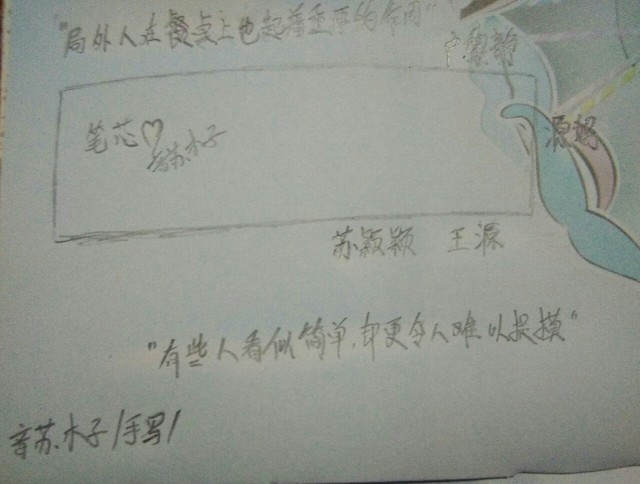 "局外人在餐桌上也起着重要的作用"
卢黎静
源妈
笔芯♡
音苏木子
苏颖颖 王源
"有些人看似简单,却更令人难以捉摸"
音苏木子/手写/